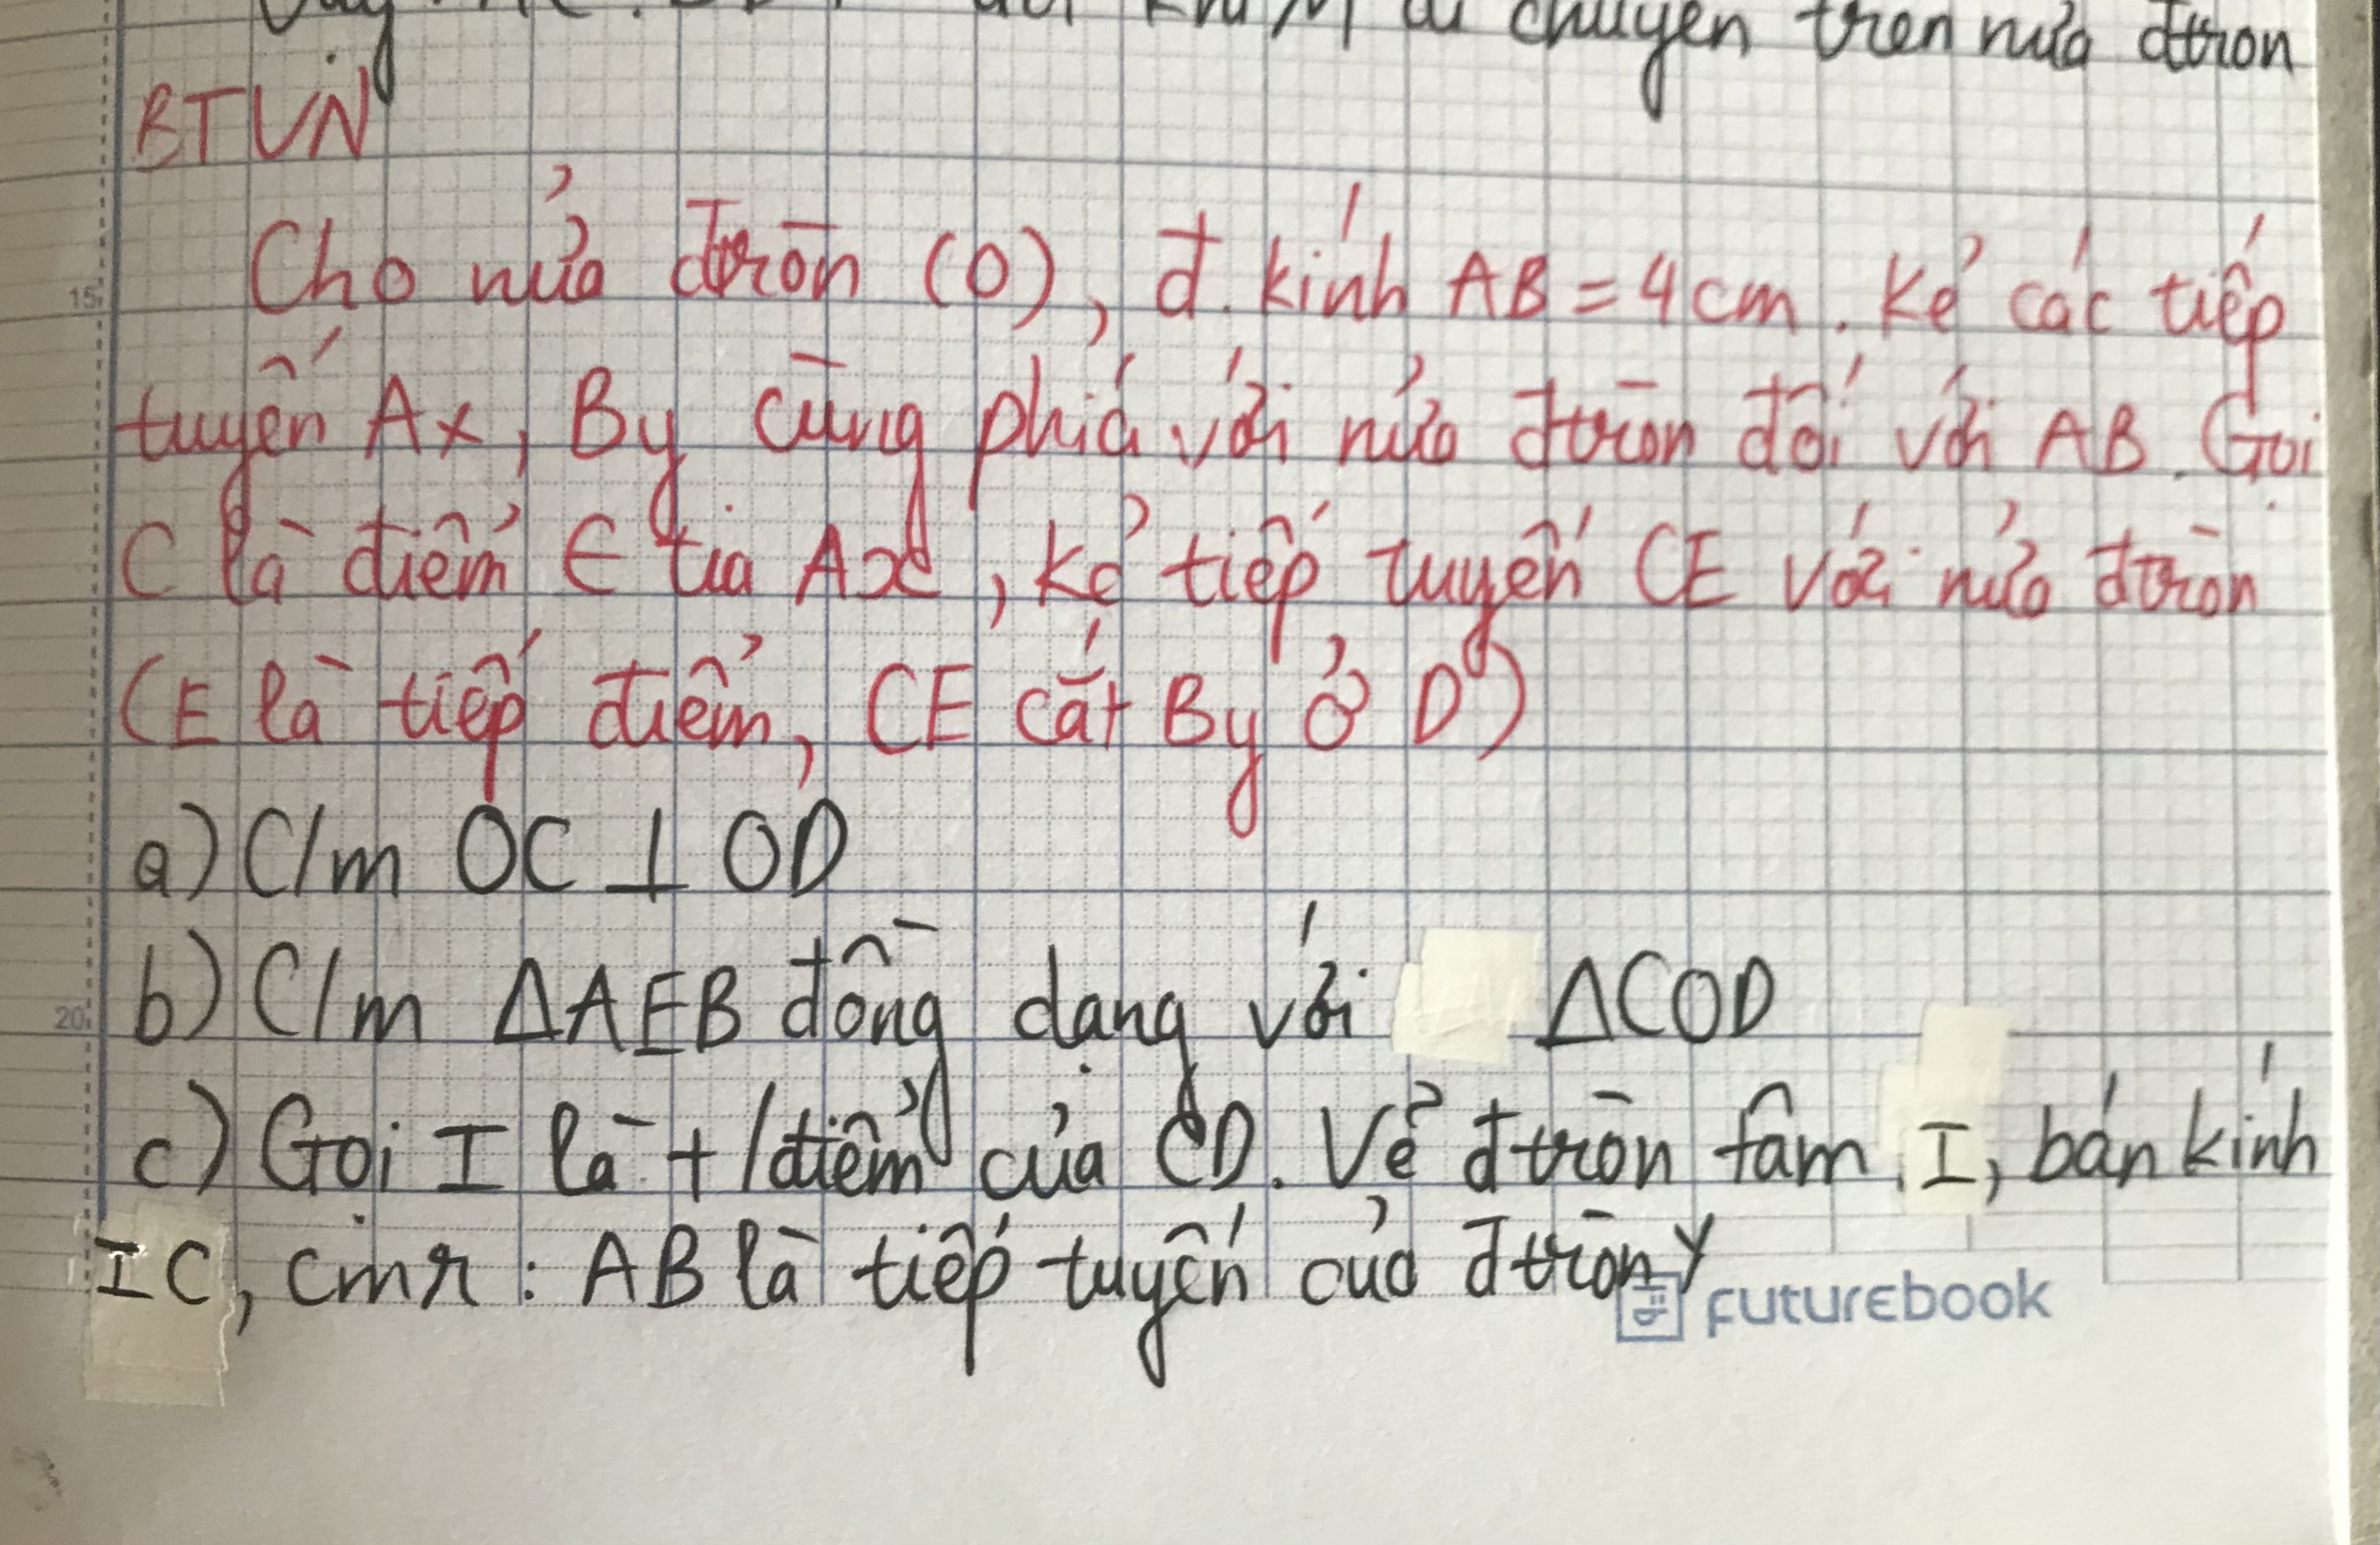 chuyển trên nửa đtròn
BTVN
Cho nửa đtròn (O), đ.kính AB = 4cm. Kẻ các tiếp
15
tuyến Ax, By cùng phía với nửa đtròn đối với AB. Gọi
C là điểm ∈ tia Ax, kẻ tiếp tuyến CE với nửa đtròn
(E là tiếp điểm, CE cắt By ở D)
a) C/m OC ⊥ OD
b) C/m ΔAEB đồng dạng với ΔCOD
20
c) Gọi I là t/điểm của CD. Vẽ đtròn tâm I, bán kính
IC, cmr: AB là tiếp tuyến của đtròn
futurebook